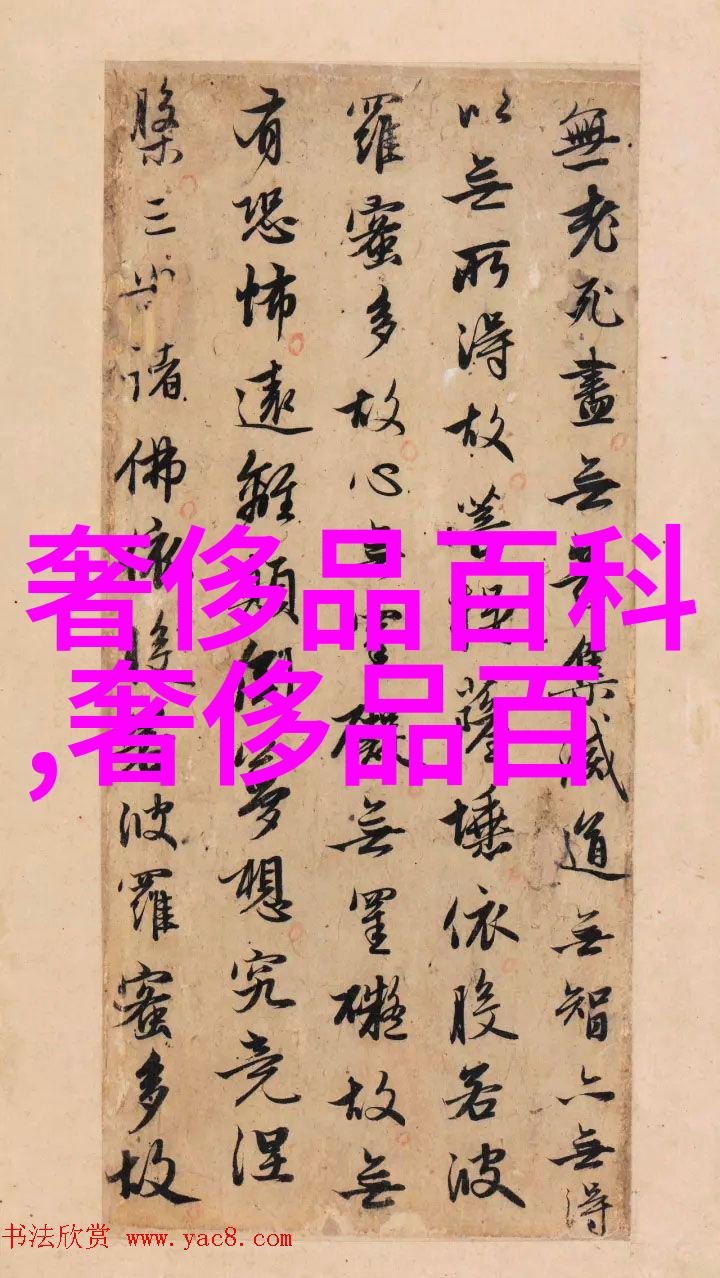 無老死盡无苦集滅道无智亦无得
以无所得故菩提薩埵依般若波
羅蜜多故心无罣礙无罣礙故无
有恐怖遠離顛倒夢想究竟涅
槃三世諸佛依般若波羅蜜多故
奢侈品百科
,奢侈品百
书法欣赏 www.yac8.com